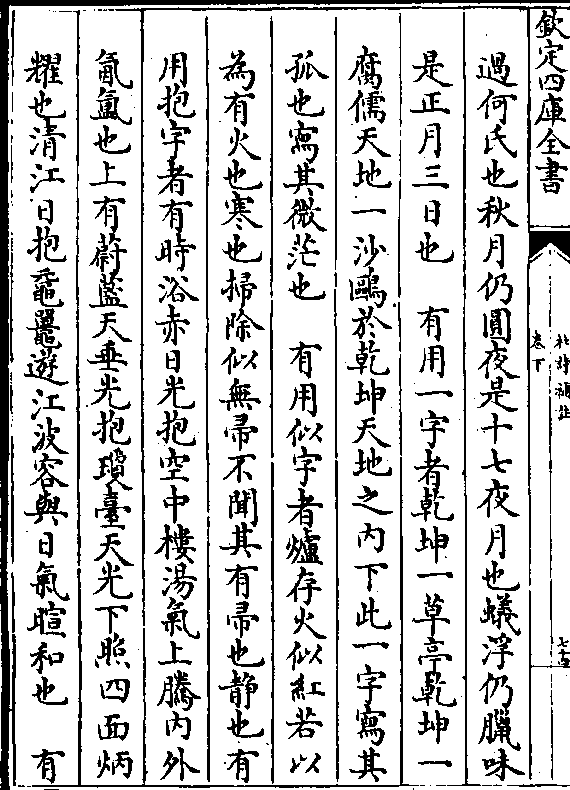 欽定四庫全書
杜詩補註
卷下
過何氏也秋月仍圓夜是十七夜月也蟻浮仍臘味
是正月三日也　有用一字者乾坤一草亭乾坤一
腐儒天地一沙鷗於乾坤天地之內下此一字寫其
孤也寫其微茫也　有用似字者爐存火似紅若以
為有火也寒也掃除似無帚不聞其有帚也静也有
用抱字者有時浴赤日光抱空中樓湯氣上騰内外
氤氳也上有蔚藍天垂光抱瓊臺天光下照四面炳
耀也清江日抱黿鼉遊江波容與日氣暄和也　有